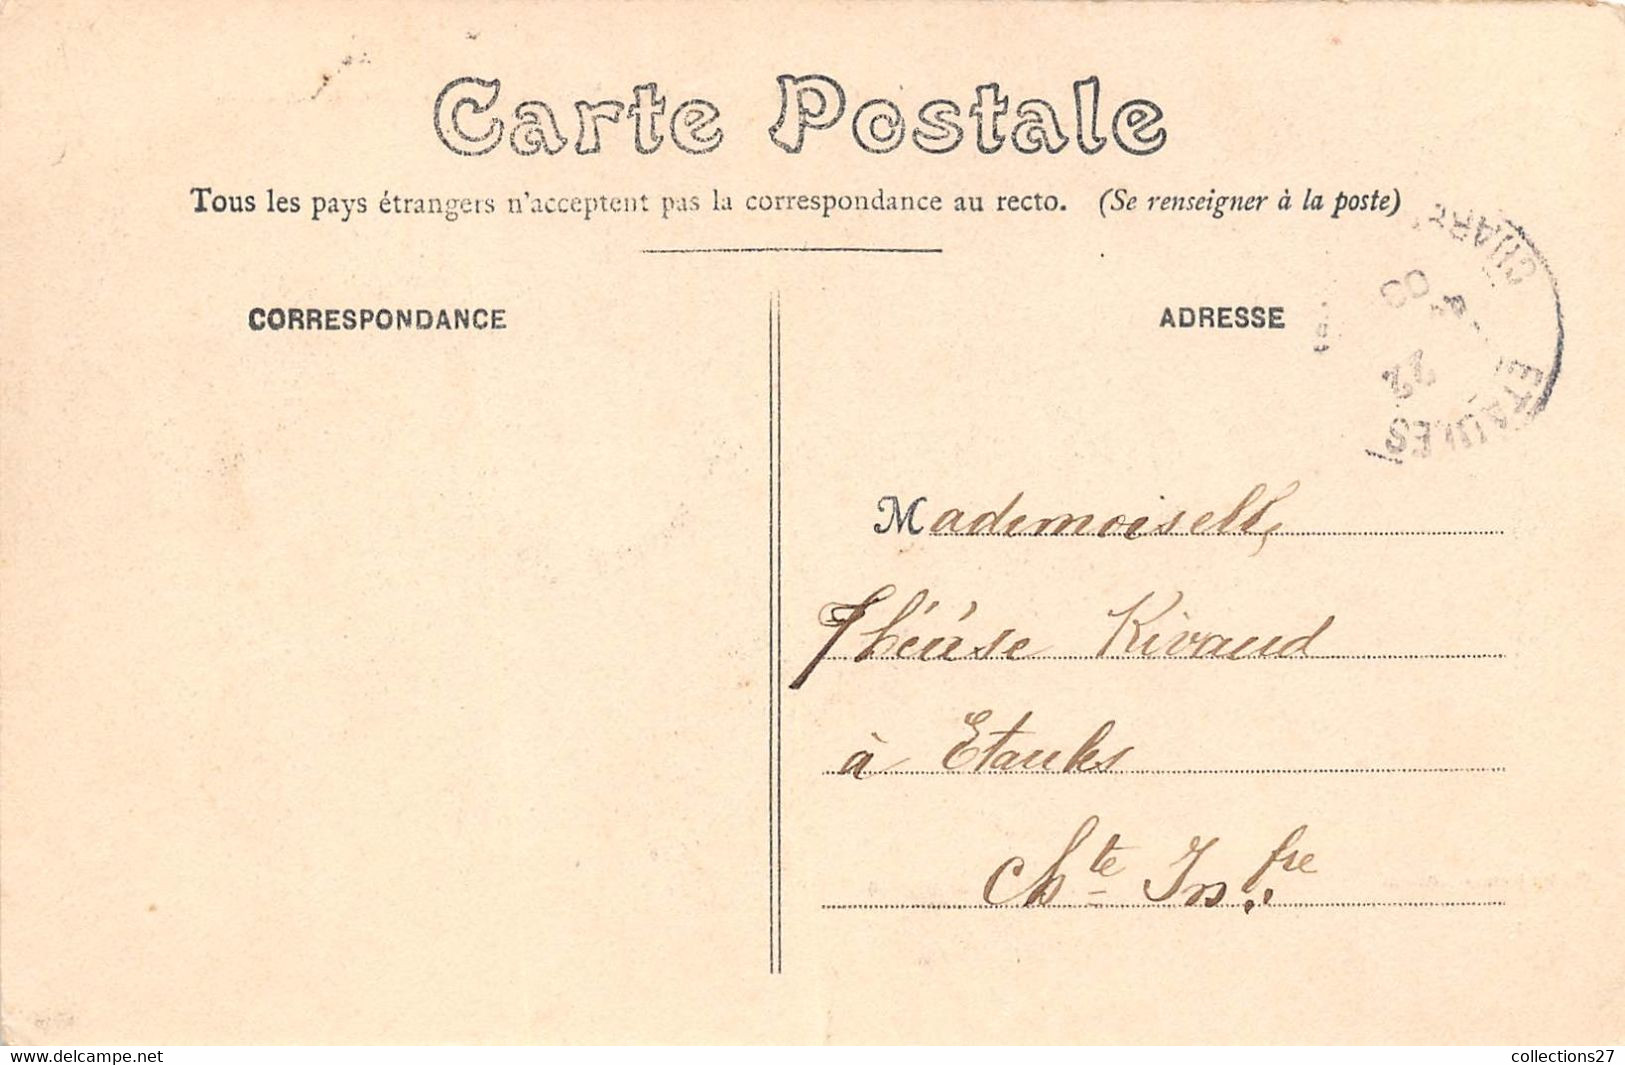 Carte Postale
Tous les pays étrangers n'acceptent pas la correspondance au recto. (Se renseigner à la poste)
CORRESPONDANCE
ADRESSE
ETAULES
22
Mademoiselle,
Thérèse Rivaud
à Etaules
Chte Infre
www.delcampe.net
collections27